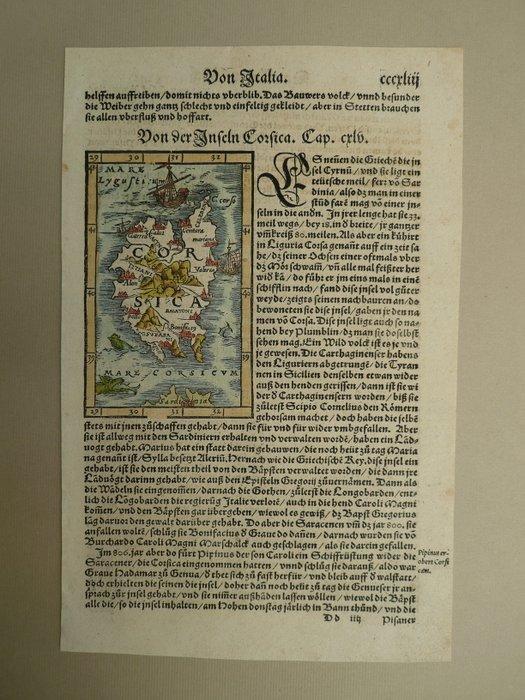 Von Italia. cccxliij
helffen auffreiben/ domit nichts vberblib. Das Bauwers volck/ vnnd besunder
die Weiber gehn gantz schlecht vnd einfeltig gekleidt/ aber in Stetten brauchen
sie allen vberfluß vnd hoffart.
Von der Inseln Corsica. Cap. cxlv.
29 30 31 32
MARE
Lygusticum
C. corso
COR
SICA
Bonifacio
MARE CORSICVM
Sardinia
29 30 31 32
ES nenen die Griechē die jn
sel Cyrnū/ vnd sie ligt ein
teütsche meil/ ferr vō Sar
dinia/ also dz man in einer
stūd farē mag vō einer jn-
seln in die andn. In jrer lenge hat sie 33.
meil wegs/ bey 18. in d breite/ jr gantzer
vmkreiß 80. meilen. Als aber ein kühirt
in Liguria Corsa genañt auff ein zeit sa
he/ dz seiner Ochsen einer oftmals vber
dz Mör schwam/ vñ alle mal feißter her
wid kā/ do führ er jm eins mals in einē
schifflin nach/ fand dise jnsel vol gůter
weyde/ zeigts seinen nachbauren an/ do
bewoneten sie dise jnsel/ gaben jr den na
men vō Corsa. Dise jnsel ligt auch so na-
hend bey Plumbin/ dz man sie do selbst
sehen mag. Ein Wild volck ist es je vnd
je gewesen. Die Carthaginenser haben
den Liguriern abgetrungē/ die Tyran
nen in Sicilien denselben etwan wider
auß den henden gerissen/ dann ist sie wi
der d Carthaginensern worden/ biß sie
zůletst Scipio Cornelius den Römern
gehorsam machet/ doch haben die selbē
stets mit jnen zůschaffen gehabt/ dann sie für vnd für wider vmbgefallen. Aber
sie ist allweg mit den Sardiniern erhalten vnd verwalten wordē/ haben ein Lād-
uogt gehabt. Marius hat ein statt darein gebauwen/ die noch heüt zů tag Maria
na genañt ist/ Sylla besetzt Aleriū. Hernach wie die Griechische Key. dise jnsel ein
gehabt/ ist sie den meisten theil von den Bäpsten verwaltet worden/ die dann jre
Lāduögt darinn gehabt/ wie auß den Episteln Gregorij zůuernämen. Dann als
die Wādeln sie eingenomēn/ darnach die Gothen/ zůletst die Longobarden/ ent-
lich die Lōgobarden die regierūg Italie verlorē/ auch in die hend Caroli Magni
komēn/ vnd den Bäpsten gar übergeben/ wiewol es gewiß/ dz Bapst Gregorius
lāg daruor den gewalt darüber gehabt. Do aber die Saracenen vm dz jar 800. sie
anfallen woltē/ schlůg sie Bonifacius d Graue do danēn/ darnach wurden sie vō
Burchardo Caroli Magni Marschalck auch geschlagen/ als sie darein gefallen.
Im 806. jar aber do fürt Pipinus der son Caroli ein Schiffrüstung wider die
Saracener/ die Corsica eingenommen hatten/ vnnd schlůg sie darauß/ aldo war
Graue Hadamar zů Genua/ d thet sich zů fast herfür/ vnd bleib auff d walstatt/
doch erhielten die seinen die jnsel/ doher dañ noch heüt zů tag die Genueser jr an-
sprach zůr jnsel gehabt/ vnd sie nimēr außhäden lassen wöllen/ wiewol die Bäpst
alle die/ so die jnsel inhalten/ am Hohen donstag järlich in Bann thünd/ vnd die
Pipinus er-
obert Corsi
cam.
D d iiij Pisaner